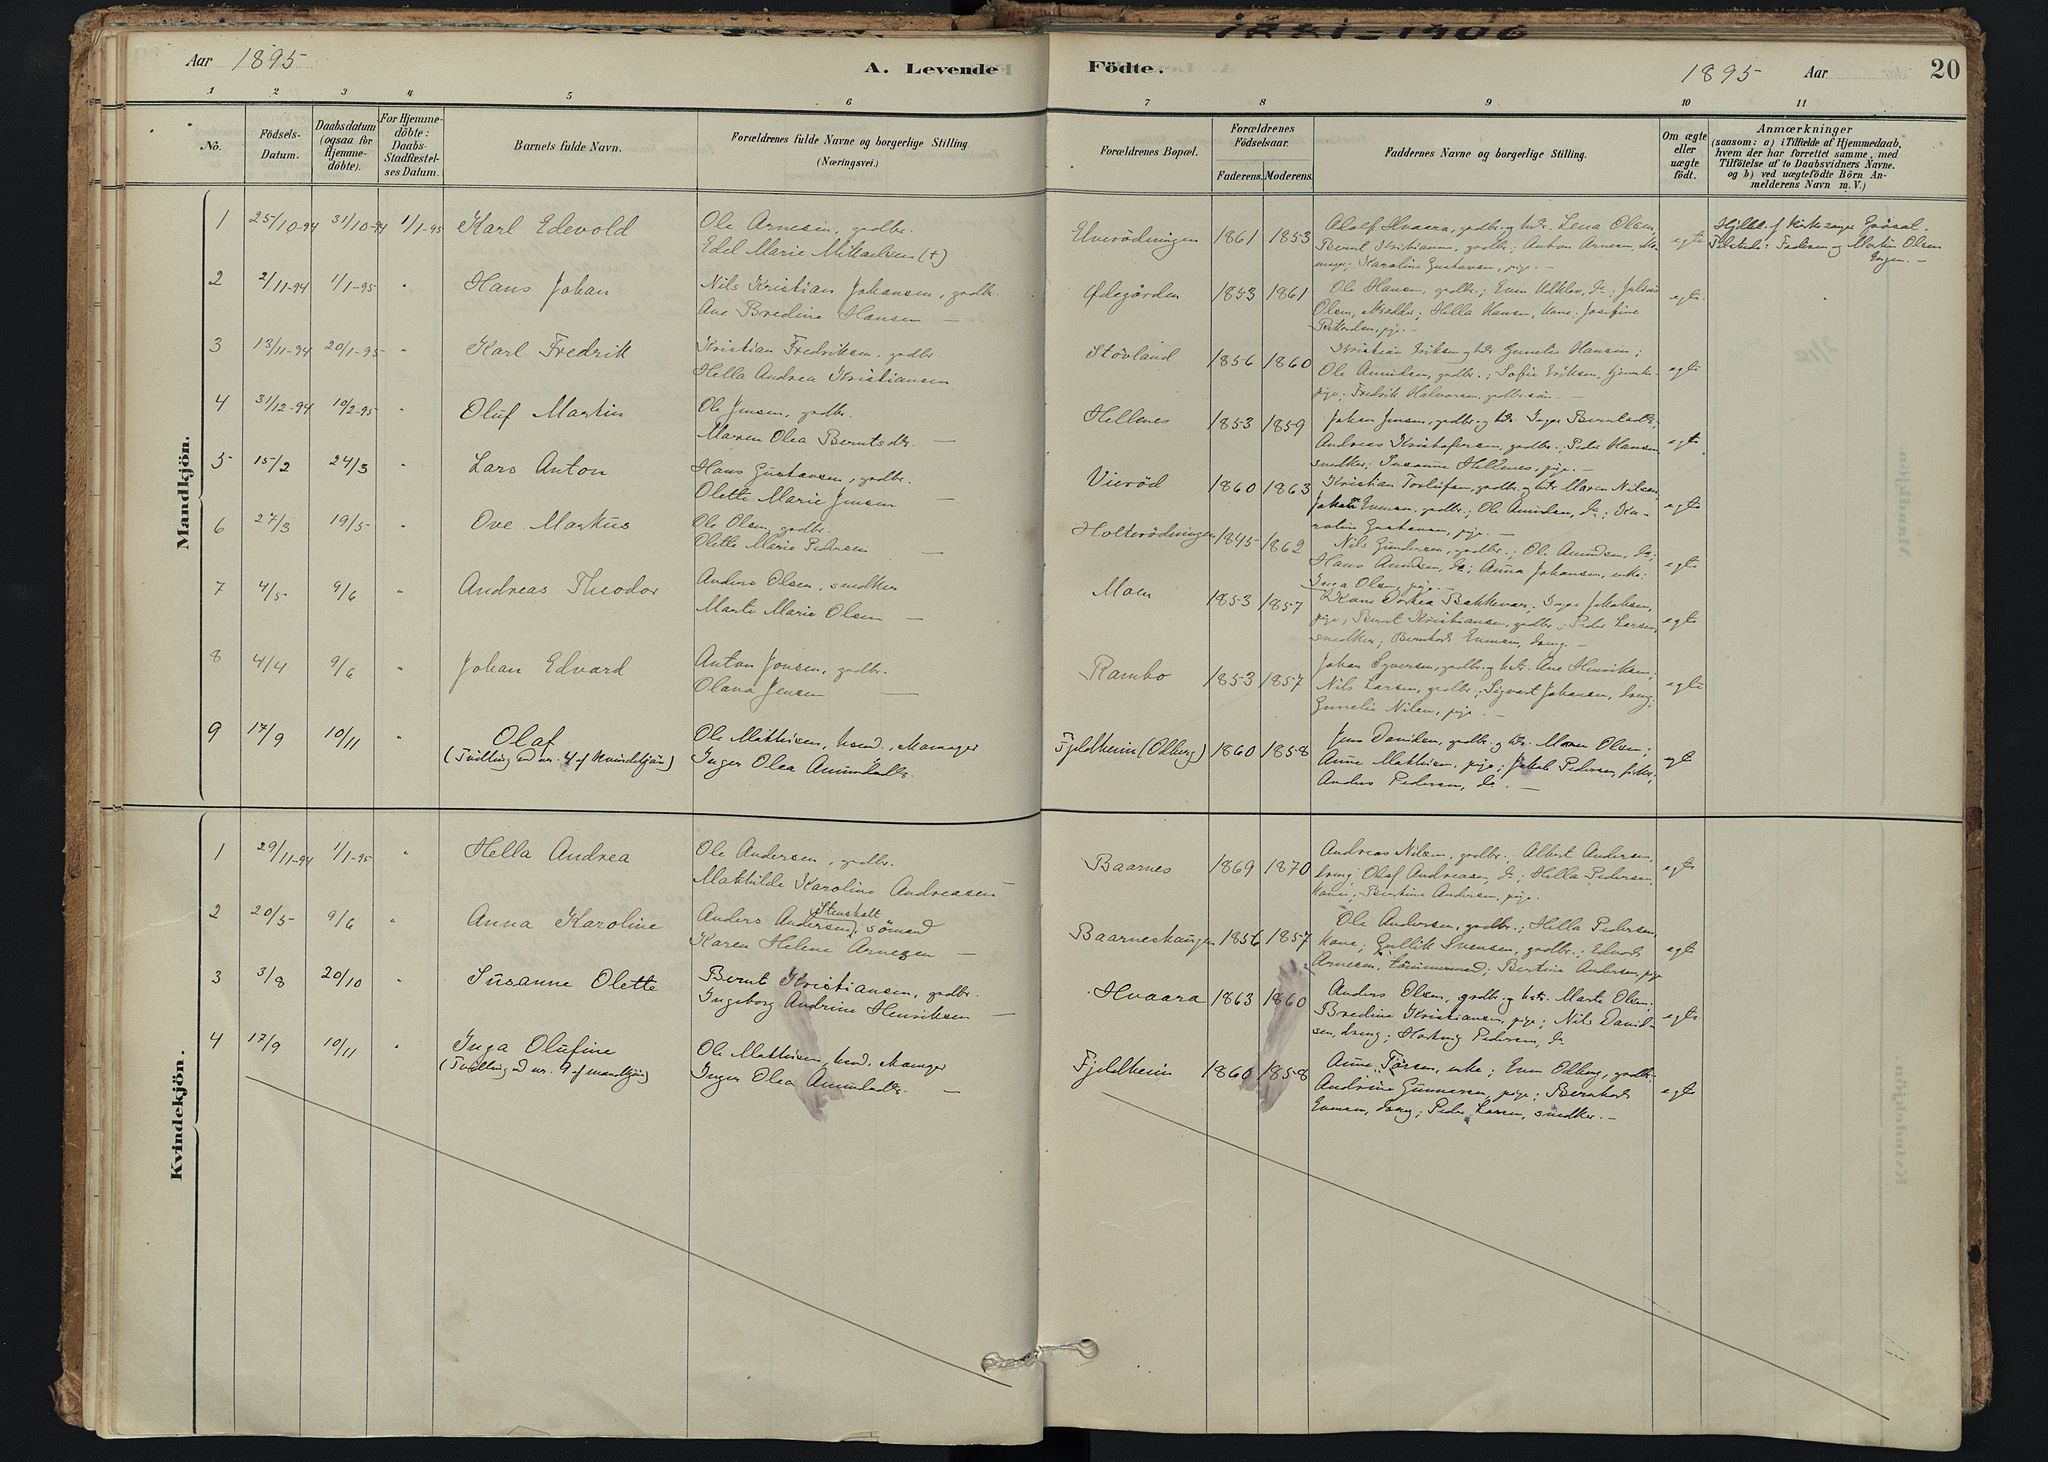 1881-1906
Aar 1895
A. Levende
Födte.
1895 Aar
20
1 2 3 4 5 6 7 8 9 10 11
No.
Födsels-
Datum.
Daabsdatum
(ogsaa for
Hjemme-
döbte).
For Hjemme-
döbte:
Daabs-
Stadfæstel-
ses Datum.
Barnets fulde Navn.
Forældrenes fulde Navne og borgerlige Stilling.
(Næringsvei.)
Forældrenes Bopæl.
Forældrenes
Födselsaar.
Faderens. Moderens.
Faddernes Navne og borgerlige Stilling.
Om ægte
eller
uægte
födt.
Anmærkninger
(saasom: a) i Tilfælde af Hjemmedaab,
hvem der har forrettet samme, med
Tilföielse af to Daabsvidners Navne.
og b) ved uægtefödte Börn An-
melderens Navn m. V.)
Mandkjön.
1 25/10-94 31/10-94 1/1-95 Karl Edevold
Ole Arnesen, grdbr.
Edel Marie Mikaelsen (+)
Elverödningen 1861 1853
Adolf Hvaara, grdbr. og hstr. Lena Olsen,
Bernt Kristiansen, grdbr.; Anton Arnesen,
Karoline Gustavsen, pige. —
egte
Martin Olsen
2 2/11-94 1/1-95 " Hans Johan
Nils Kristian Johansen, grdbr.
Ane Bredine Hansen —
Ødegården 1853 1861
Ole Hansen, grdbr.; Even Ulklev, do; Julius
Olsen, skrædder; Hella Hansen, kone; Josefine
Rikardsen, pige. —
egte
3 13/11-94 20/1-95 " Karl Fredrik
Kristian Fredriksen, grdbr.
Hella Andrea Kristiansen
Stövland 1856 1860
Kristian Eriksen og hstr. Gunelie Hansen;
Ole Amundsen, grdbr.; Sofie Eriksen, tjeneste-
pige; Fredrik Halvorsen, grdbr.sön. —
egte
4 31/12-94 10/2-95 " Oluf Martin
Ole Jensen, grdbr.
Maren Olea Berntsdtr. —
Hellenes 1853 1859
Johan Jensen, grdbr. og hstr. Inger Berntsdtr.;
Andreas Kristofersen, grdbr.; Peder Hansen
snedker; Susanne Hellenes, pige. —
egte
5 15/2 24/3 " Lars Anton
Hans Gustavsen, grdbr.
Olette Marie Jensen —
Vieröd 1860 1863
Kristian Torlufsen, grdbr. og hstr. Maren Nilsen,
Johan Evensen, grdbr.; Ole Amundsen, do; Ka-
roline Gustavsen, pige. —
egte
6 27/3 19/5 " Ove Markus
Ole Olsen, grdbr.
Olette Marie Pedersen —
Holterödningen 1845 1862
Nils Gundersen, grdbr.; Ole Amundsen, do;
Hans Amundsen, do; Anna Johansen, enke;
Inga Olsen, pige. —
egte
7 4/5 9/6 " Andreas Theodor
Anders Olsen, snedker
Marte Marie Olsen —
Moen 1853 1857
Kone Dorthea Bakkevar; Inger Jakobsen,
pige; Bernt Kristiansen, grdbr.; Peder Larsen,
snedker; Bernhard Evensen, dreng. —
egte
8 4/4 9/6 " Johan Edvard
Anton Jonsen, grdbr.
Olava Jensen —
Rambo 1853 1857
Johan Syversen, grdbr. og hstr. Ane Henriksen;
Nils Larsen, grdbr.; Sigvart Johansen, dreng;
Gunelie Nilsen, pige. —
egte
9 17/9 10/11 " Olaf
(Tvilling ad nr. 4 af kvindekjön)
Ole Mathisen, hsmd., Mamager
Inger Olea Amundsdtr.
Fjeldheim (Odberg) 1860 1858
Jens Davidsen, grdbr. og hstr. Maren Olsen;
Anne Mathisen, pige; Jakob Pedersen, fisker,
Anders Pedersen, do. —
egte
Kvindekjön.
1 29/11-94 1/1-95 " Hella Andrea
Ole Andersen, grdbr.
Mathilde Karoline Andreasen
Baarnes 1869 1870
Andreas Nilsen, grdbr.; Albert Andersen,
dreng; Olaf Andreasen, do; Hella Pedersen,
kone; Bertine Andersen, pige.
egte
2 20/5 9/6 " Anna Karoline
Anders Andersen Stensholt, sömand
Karen Helene Arnesen —
Baarneshaugen 1856 1857
Ole Andersen, grdbr.; Hella Pedersen,
kone; Gullik Svensen, grdbr.; Edvard
Arnesen, tömmermand; Bertine Andersen, pige
egte
3 3/8 20/10 " Susanne Olette
Bernt Kristiansen, grdbr.
Ingeborg Andrine Henriksen —
Hvaara 1863 1860
Anders Olsen, grdbr. og hstr. Marte Olsen;
Bredine Kristiansen, pige; Nils David-
sen, dreng; Hartvig Pedersen, do
egte
4 17/9 10/11 " Inga Olufine
(Tvilling ad nr. 9 af mandkjön)
Ole Mathisen, hsmd., Mamager
Inger Olea Amundsdtr. —
Fjeldheim 1860 1858
Anne Torsen, enke; Even Odberg, grdbr.;
Andrine Gunnersen, pige; Bernhard
Evensen, dreng; Peder Larsen, snedker. —
egte